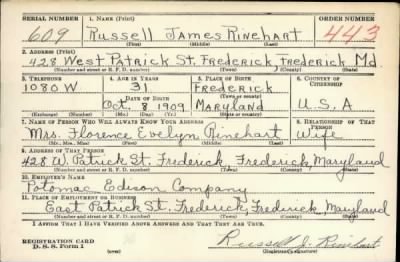 SERIAL NUMBER 1. NAME (Print) ORDER NUMBER
609 Russell James Rinehart 443
(First) (Middle) (Last)
2. ADDRESS (Print)
428 West Patrick St. Frederick, Frederick Md
(Number and street or R. F. D. number) (Town) (County) (State)
3. TELEPHONE 4. AGE IN YEARS 5. PLACE OF BIRTH 6. COUNTRY OF CITIZENSHIP
1080 W 31 Frederick
(Town or county)
DATE OF BIRTH
Oct. 8 1909 Maryland U.S.A
(Exchange) (Number) (Mo.) (Day) (Yr.) (State or country)
7. NAME OF PERSON WHO WILL ALWAYS KNOW YOUR ADDRESS 8. RELATIONSHIP OF THAT PERSON
Mrs. Florence Evelyn Rinehart Wife
(Mr., Mrs., Miss) (First) (Middle) (Last)
9. ADDRESS OF THAT PERSON
428 W. Patrick St. Frederick, Frederick, Maryland
(Number and street or R. F. D. number) (Town) (County) (State)
10. EMPLOYER'S NAME
Potomac Edison Company
11. PLACE OF EMPLOYMENT OR BUSINESS
East Patrick St. Frederick, Frederick, Maryland
(Number and street or R. F. D. number) (Town) (County) (State)
I AFFIRM THAT I HAVE VERIFIED ABOVE ANSWERS AND THAT THEY ARE TRUE.
REGISTRATION CARD
D. S. S. Form 1 (over) Russell J. Rinehart
(Registrant's signature)